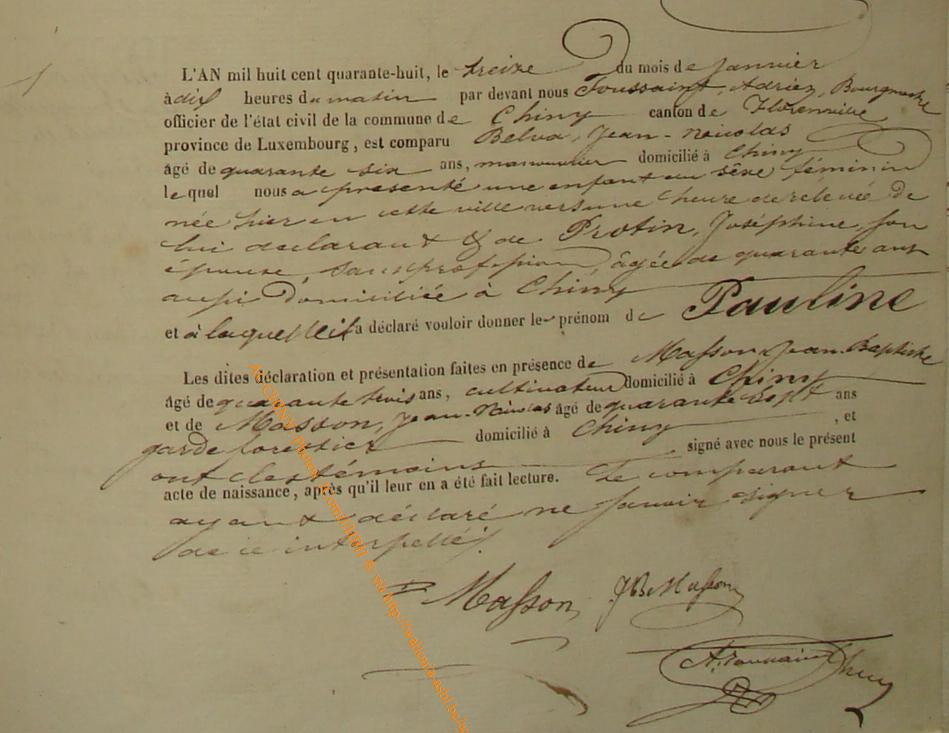 L'AN mil huit cent quarante-huit, le treize du mois de Janvier
à dix heures du matin par devant nous Toussaint, Adrien, Bourgmestre
officier de l'état civil de la commune de Chiny canton de Florenville
province de Luxembourg, est comparu Belva, Jean-Nicolas
âgé de quarante six ans, manouvrier domicilié à Chiny
lequel nous a présenté une enfant du sèxe féminin
née hier en cette ville vers une heure de relevée de
lui déclarant & de Protin, Joséphine, son
épouse, sans profession, âgée de quarante ans
aussi domiciliée à Chiny
et à laquelle il a déclaré vouloir donner le prénom de Pauline
Les dites déclaration et présentation faites en présence de Masson, Jean-Baptiste
âgé de quarante trois ans, cultivateur domicilié à Chiny
et de Masson, Jean-Nicolas âgé de quarante sept ans
garde forestier domicilié à Chiny, et
ont les témoins signé avec nous le présent
acte de naissance, après qu'il leur en a été fait lecture. Le comparant
ayant déclaré ne savoir signer
de ce interpellé.
Masson JB Masson
A. Toussaint